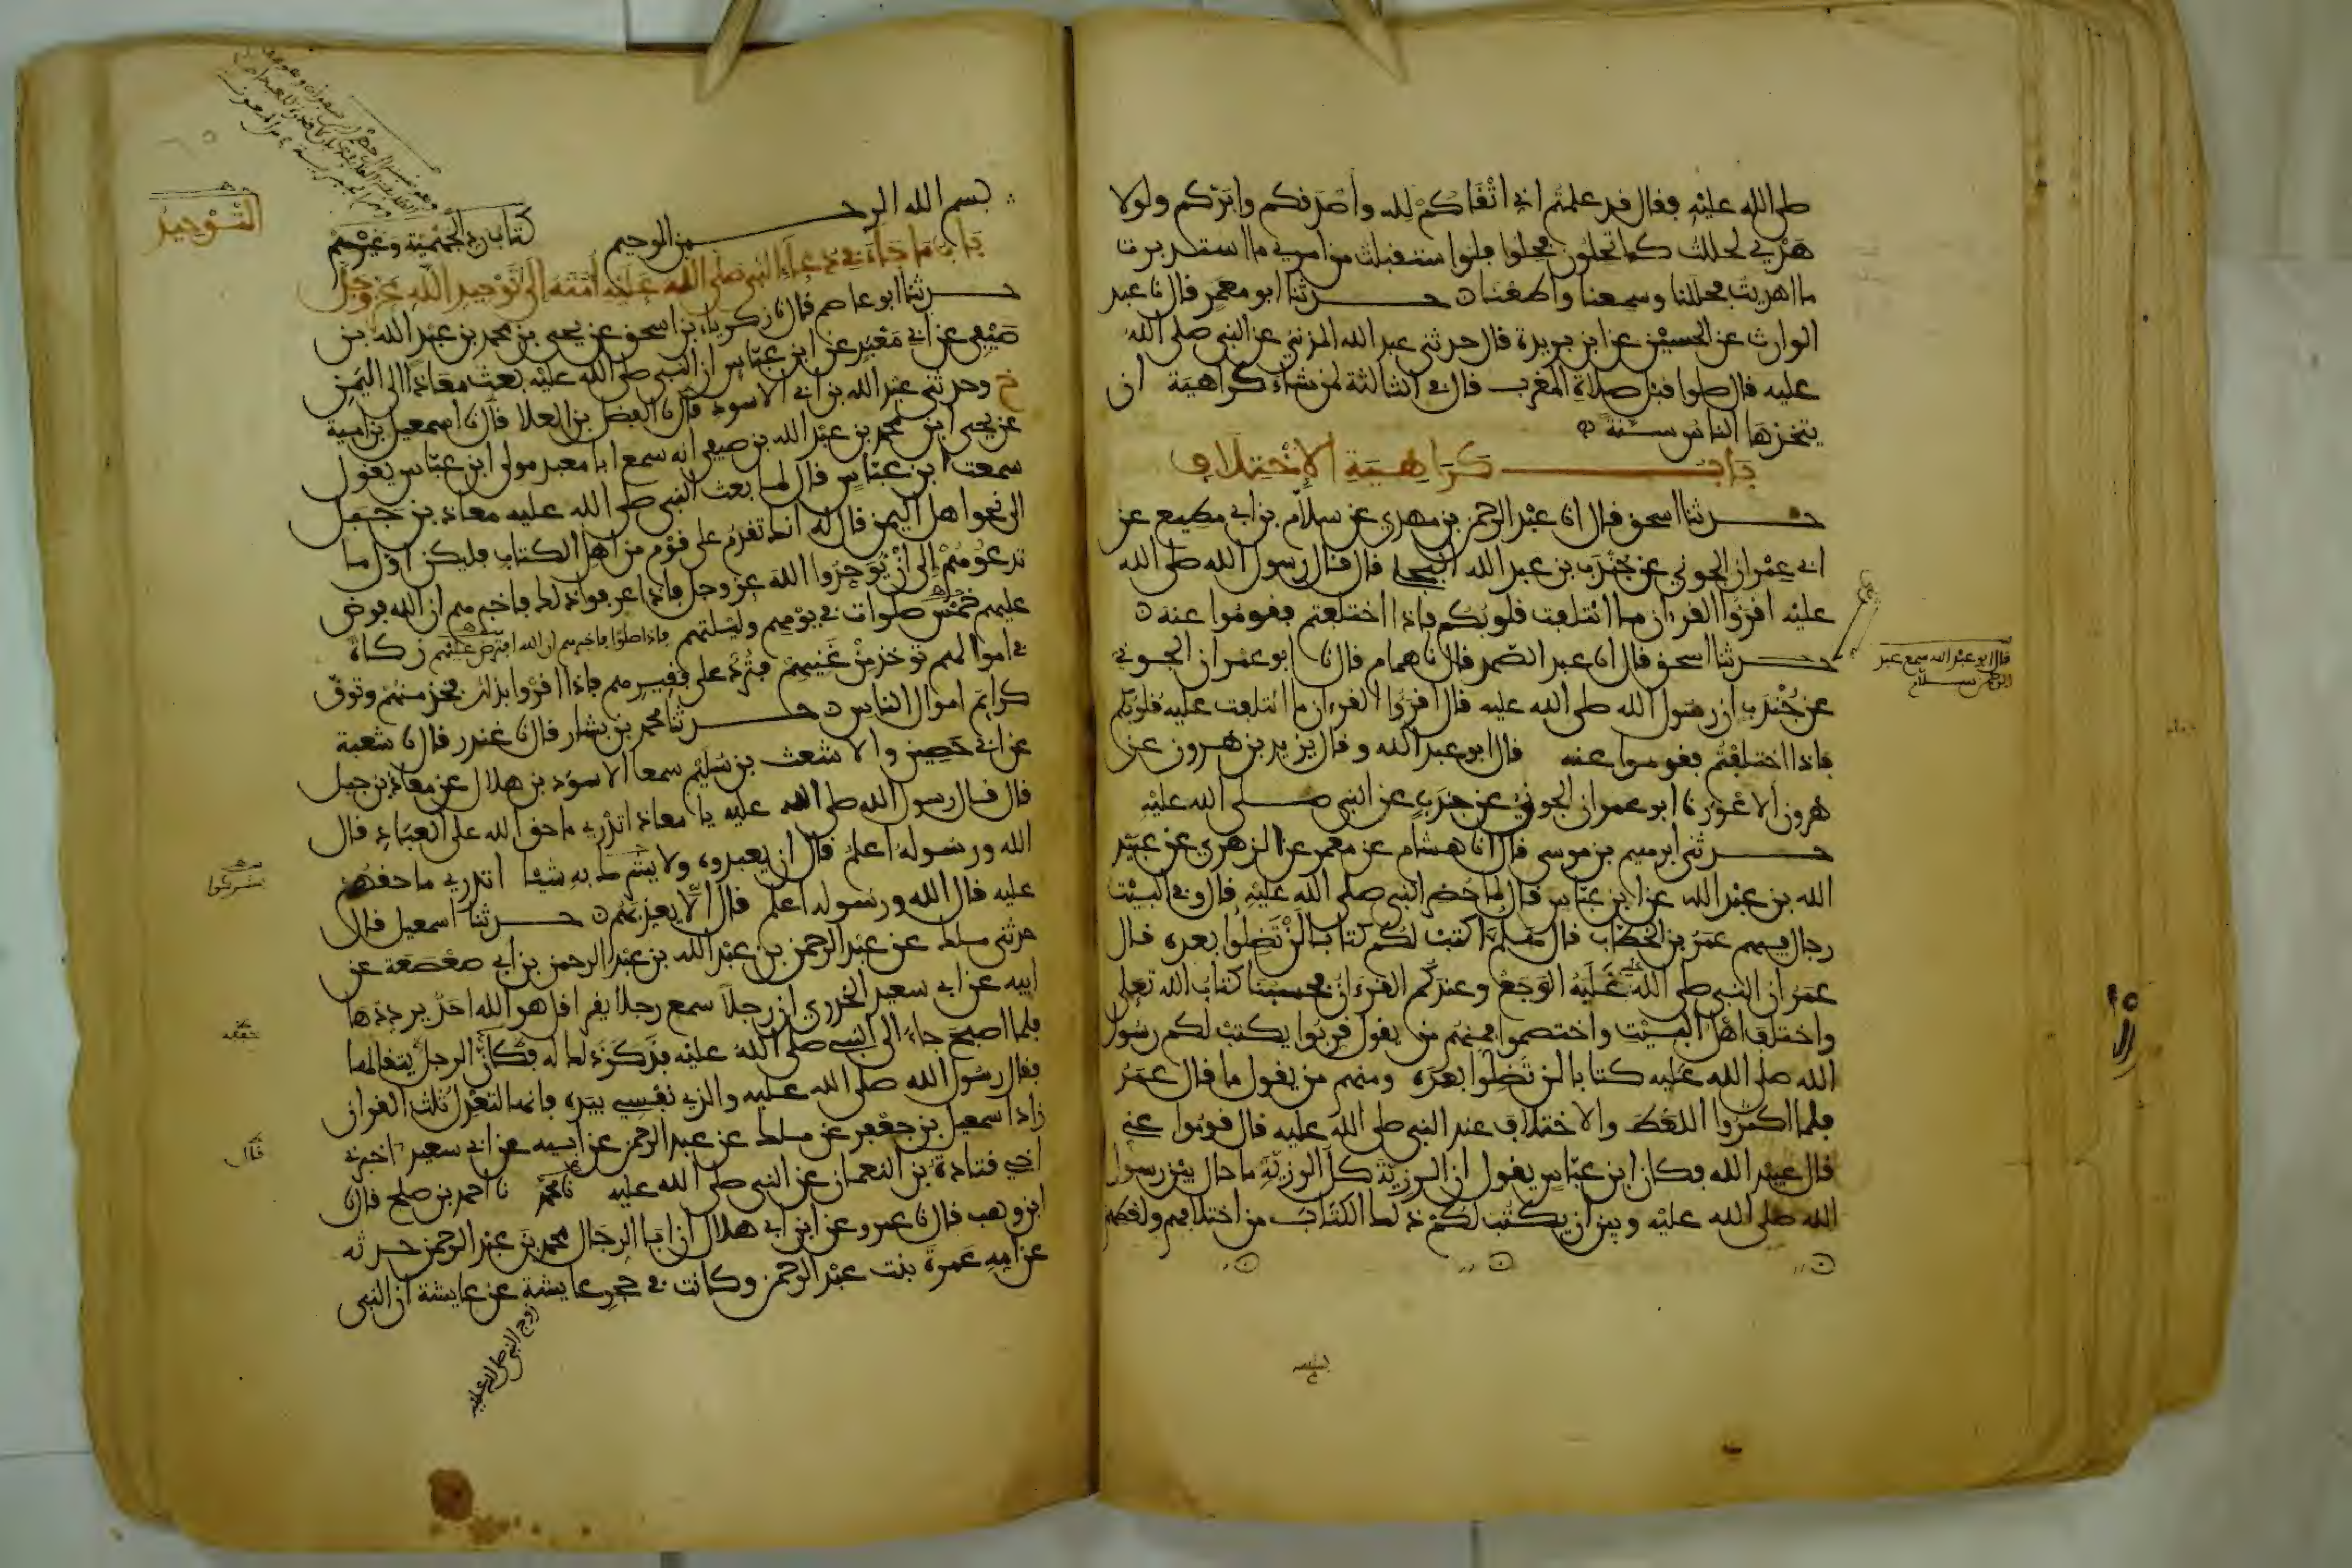 صلى الله عليه فقال قد علمتم اني اتقاكم لله وأصدقكم وابركم ولولا
هديي لحللت كما تحلون فحلوا فلوا ستقبلت من امري ما استدبرت
ما اهديت فحللنا وسمعنا واطعنا حدثنا ابو معمر قال نا عبد
الوارث عن الحسين عن ابن بريدة قال حدثني عبد الله المزني عن النبي صلى الله
عليه قال صلوا قبل صلاة المغرب قال في الثالثة لمن شاء كراهية أن
يتخذها الناس سنة
باب كراهية الاختلاف
حدثنا اسحق قال انا عبد الرحمن بن مهدي عن سلام بن ابي مطيع عن
ابي عمران الجوني عن جندب بن عبد الله البجلي قال قال رسول الله صلى الله
عليه اقرؤا القرءان ما ائتلفت قلوبكم فاذا اختلفتم فقوموا عنه
حدثنا اسحق قال انا عبد الصمد قال نا همام قال نا ابو عمران الجوني
عن جندب ان رسول الله صلى الله عليه قال اقرؤا القرءان ما ائتلفت عليه قلوبكم
فاذا اختلفتم فقوموا عنه قال ابو عبد الله وقال يزيد بن هرون عن
هرون الاعور نا ابو عمران الجوني عن جندب عن النبي صلى الله عليه
حدثني ابرهيم بن موسى قال انا هشام عن معمر عن الزهري عن عبيد
الله بن عبد الله عن ابن عباس قال لما حضر النبي صلى الله عليه قال وفي البيت
رجال فيهم عمر بن الخطاب قال هلم اكتب لكم كتابا لن تضلوا بعده قال
عمر ان النبي صلى الله عليه غلبه الوجع وعندكم القرءان فحسبنا كتاب الله تعلى
واختلف اهل البيت واختصموا فمنهم من يقول قربوا يكتب لكم رسول
الله صلى الله عليه كتابا لن تضلوا بعده ومنهم من يقول ما قال عمر
فلما اكثروا اللغط والاختلاف عند النبي صلى الله عليه قال قوموا عني
قال عبيد الله فكان ابن عباس يقول ان الرزية كل الرزية ما حال بين رسول
الله صلى الله عليه وبين ان يكتب لكم ذلك الكتاب من اختلافهم ولغطهم
قال ابو عبد الله سمع عبد
الرحمن سلام
التوحيد
بسم الله الرحمن الرحيم كتاب رد الجهمية وغيرهم
باب ما جاء في دعاء النبي صلى الله عليه أمته الى توحيد الله عز وجل
حدثنا ابو عاصم قال نا زكرياء بن اسحق عن يحيى بن محمد بن عبد الله بن
صيفي عن ابي معبد عن ابن عباس ان النبي صلى الله عليه بعث معاذا الى اليمن
ح وحدثني عبد الله بن ابي الاسود قال نا الفضل بن العلا قال نا اسمعيل بن امية
عن يحيى ابن محمد بن عبد الله بن صيفي انه سمع ابا معبد مولى ابن عباس يقول
سمعت ابن عباس قال لما بعث النبي صلى الله عليه معاذ بن جبل
الى نحو اهل اليمن قال له انك تقدم على قوم من اهل الكتاب فليكن اول ما
تدعوهم إلى أن يوحدوا الله عز وجل فاذا عرفوا ذلك فاخبرهم ان الله فرض
عليهم خمس صلوات في يومهم وليلتهم فاذا صلوا فاخبرهم ان الله افترض عليهم زكاة
في اموالهم توخذ من غنيهم فترد على فقيرهم فاذا اقروا بذلك فخذ منهم وتوق
كرايم اموال الناس حدثنا محمد بن بشار قال نا غندر قال نا شعبة
عن ابي حصين والاشعث بن سليم سمعا الاسود بن هلال عن معاذ بن جبل
قال قال رسول الله صلى الله عليه يا معاذ اتدري ما حق الله على العباد قال
الله ورسوله اعلم قال ان يعبدوه ولا يشرك به شيئا اتدري ما حقهم
عليه قال الله ورسوله اعلم قال الا يعذبهم حدثنا اسمعيل قال
حدثني ملك عن عبد الرحمن بن عبد الله بن عبد الرحمن بن ابي صعصعة عن
ابيه عن ابي سعيد الخدري ان رجلا سمع رجلا يقرا قل هو الله احد يرددها
فلما اصبح جاء الى النبي صلى الله عليه فذكر ذلك له فكأن الرجل يتقالها
فقال رسول الله صلى الله عليه والذي نفسي بيده فانها لتعدل ثلث القران
زاد اسمعيل بن جعفر عن ملك عن عبد الرحمن عن ابيه عن ابي سعيد اخبرني
اخي قتادة بن النعمان عن النبي صلى الله عليه نا محمد نا احمد بن صلح قال نا
ابن وهب قال نا عمرو عن ابن ابي هلال ان ابا الرجال محمد بن عبد الرحمن حدثه
عن امه عمرة بنت عبد الرحمن وكانت في حجر عايشة عن عايشة ان النبي
زوج النبي صلى الله عليه
يشركوا
قال